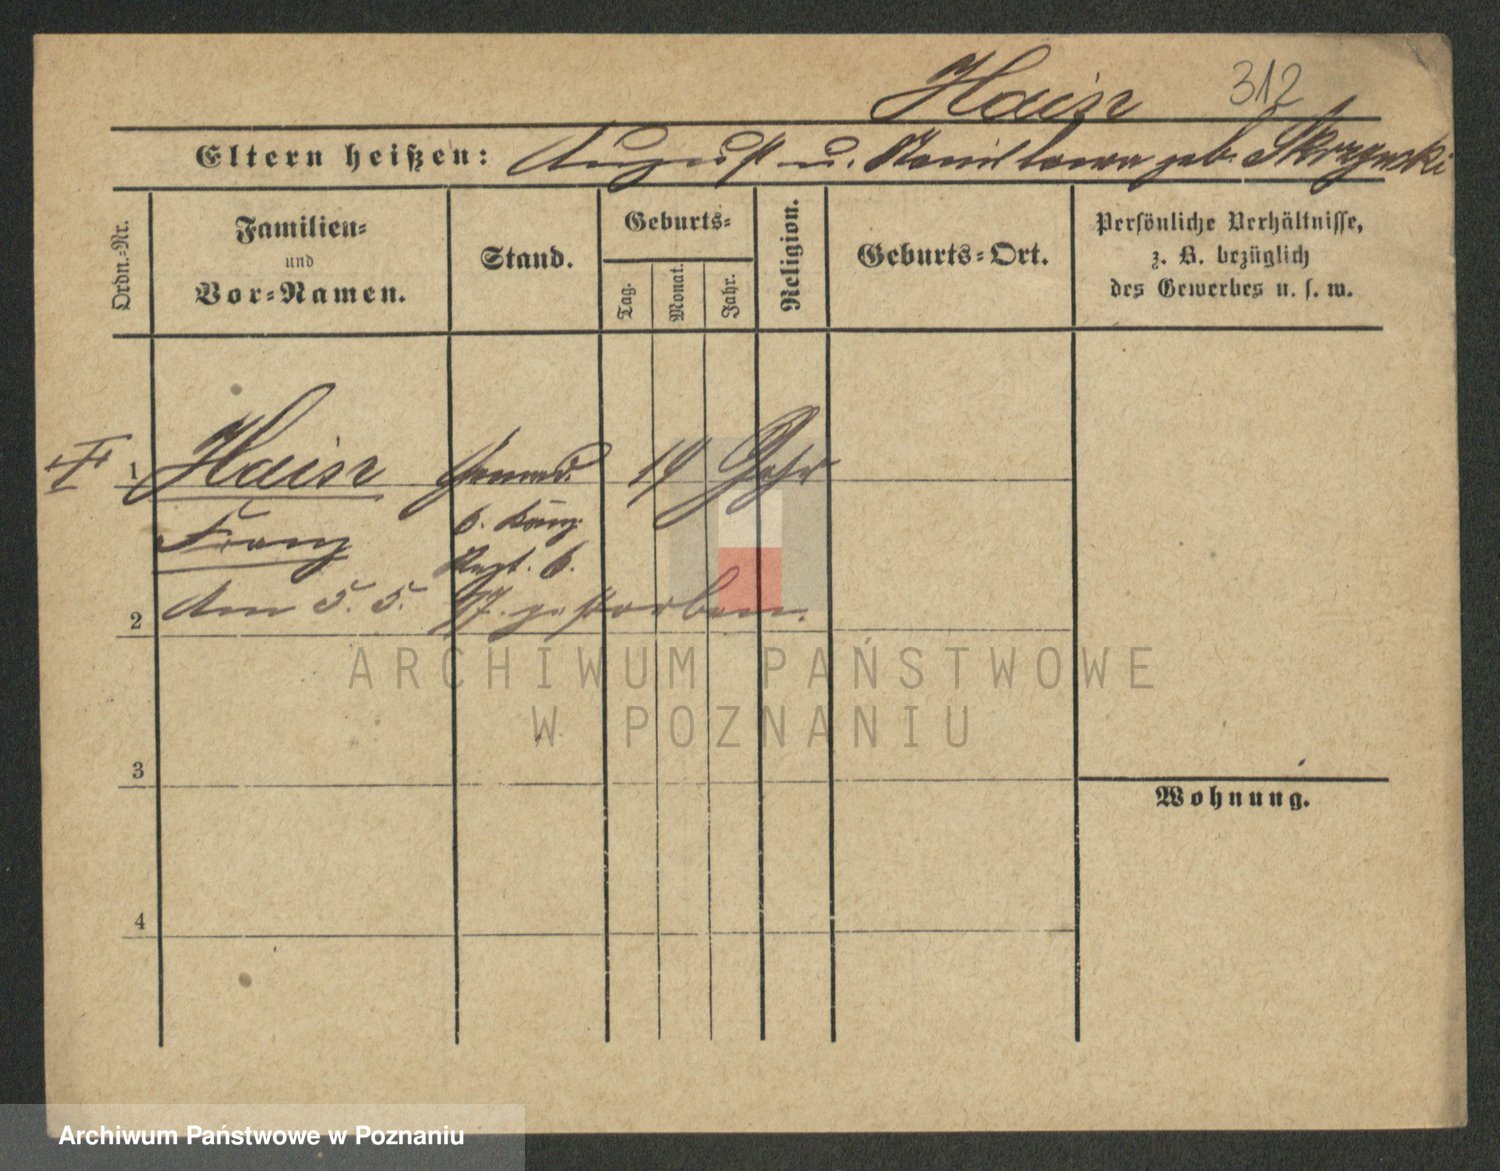 Hain 312
Eltern heißen: August u. Stanislawa geb. Skrzynski
Ordn.-Nr.
Familien-
und
Vor-Namen.
Stand.
Geburts-
Tag.
Monat.
Jahr.
Religion.
Geburts-Ort.
Persönliche Verhältnisse,
z. B. bezüglich
des Gewerbes u. s. w.
1 Hain Grenad. 19 Jahr
Franz 6. Komp.
Regt. 6.
2 Am 5. 5. 17. gestorben.
3
Wohnung.
4
ARCHIWUM PAŃSTWOWE
W POZNANIU
Archiwum Państwowe w Poznaniu